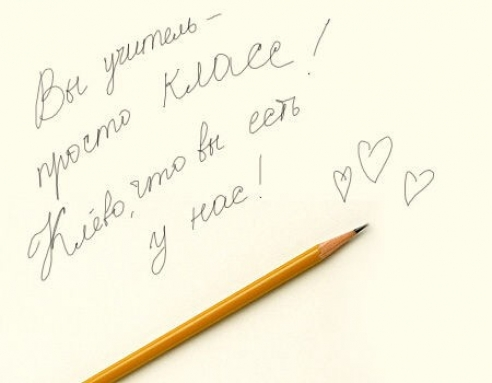 Вы учитель –
просто класс!
Клёво, что вы есть
у нас!